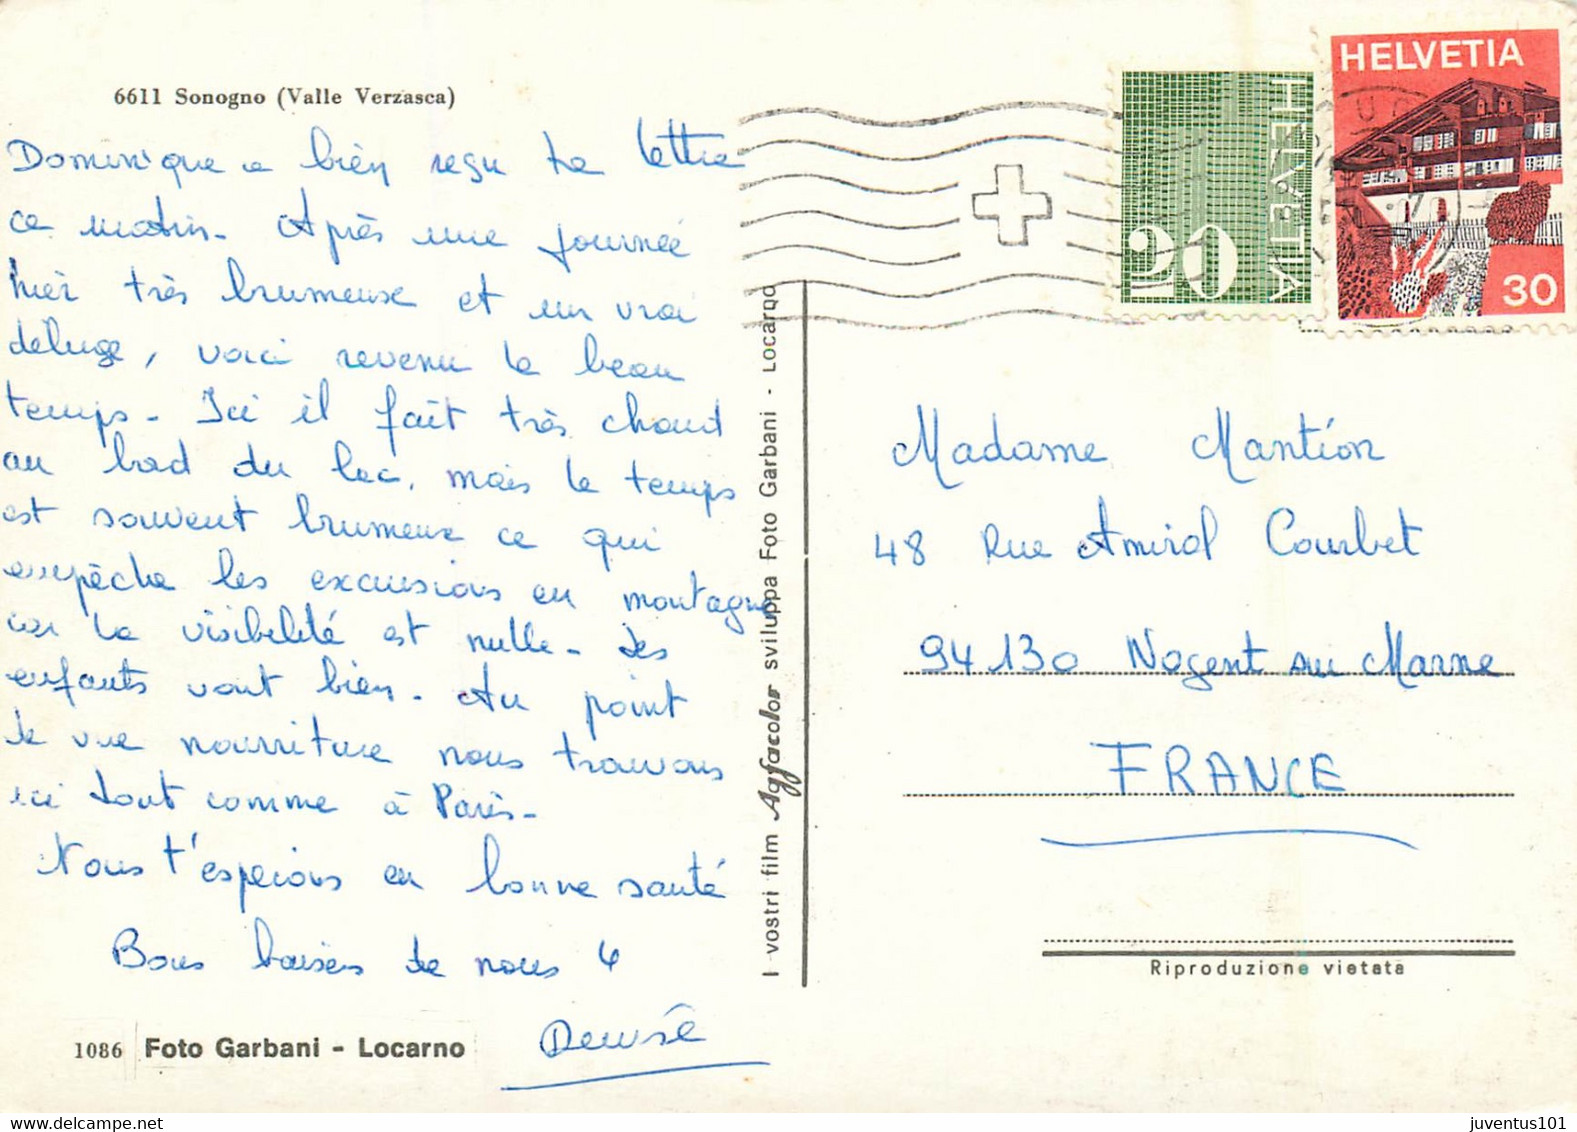 6611 Sonogno (Valle Verzasca)
Dominique a bien reçu ta lettre
ce matin. Après une journée
hier très brumeuse et un vrai
déluge, voici revenu le beau
temps - Ici il fait très chaud
au bord du lac, mais le temps
est souvent brumeux ce qui
empêche les excursions en montagne
car la visibilité est nulle - Les
enfants vont bien - Au point
de vue nourriture nous trouvons
ici tout comme à Paris -
Nous t'espérons en bonne santé
Bons baisers de nous 4
Denise
1086 Foto Garbani - Locarno
I vostri film Agfacolor sviluppa Foto Garbani - Locarno
HELVETIA
20
HELVETIA
30
Madame Mantion
48 Rue Amiral Courbet
94130 Nogent sur Marne
FRANCE
Riproduzione vietata
juventus101